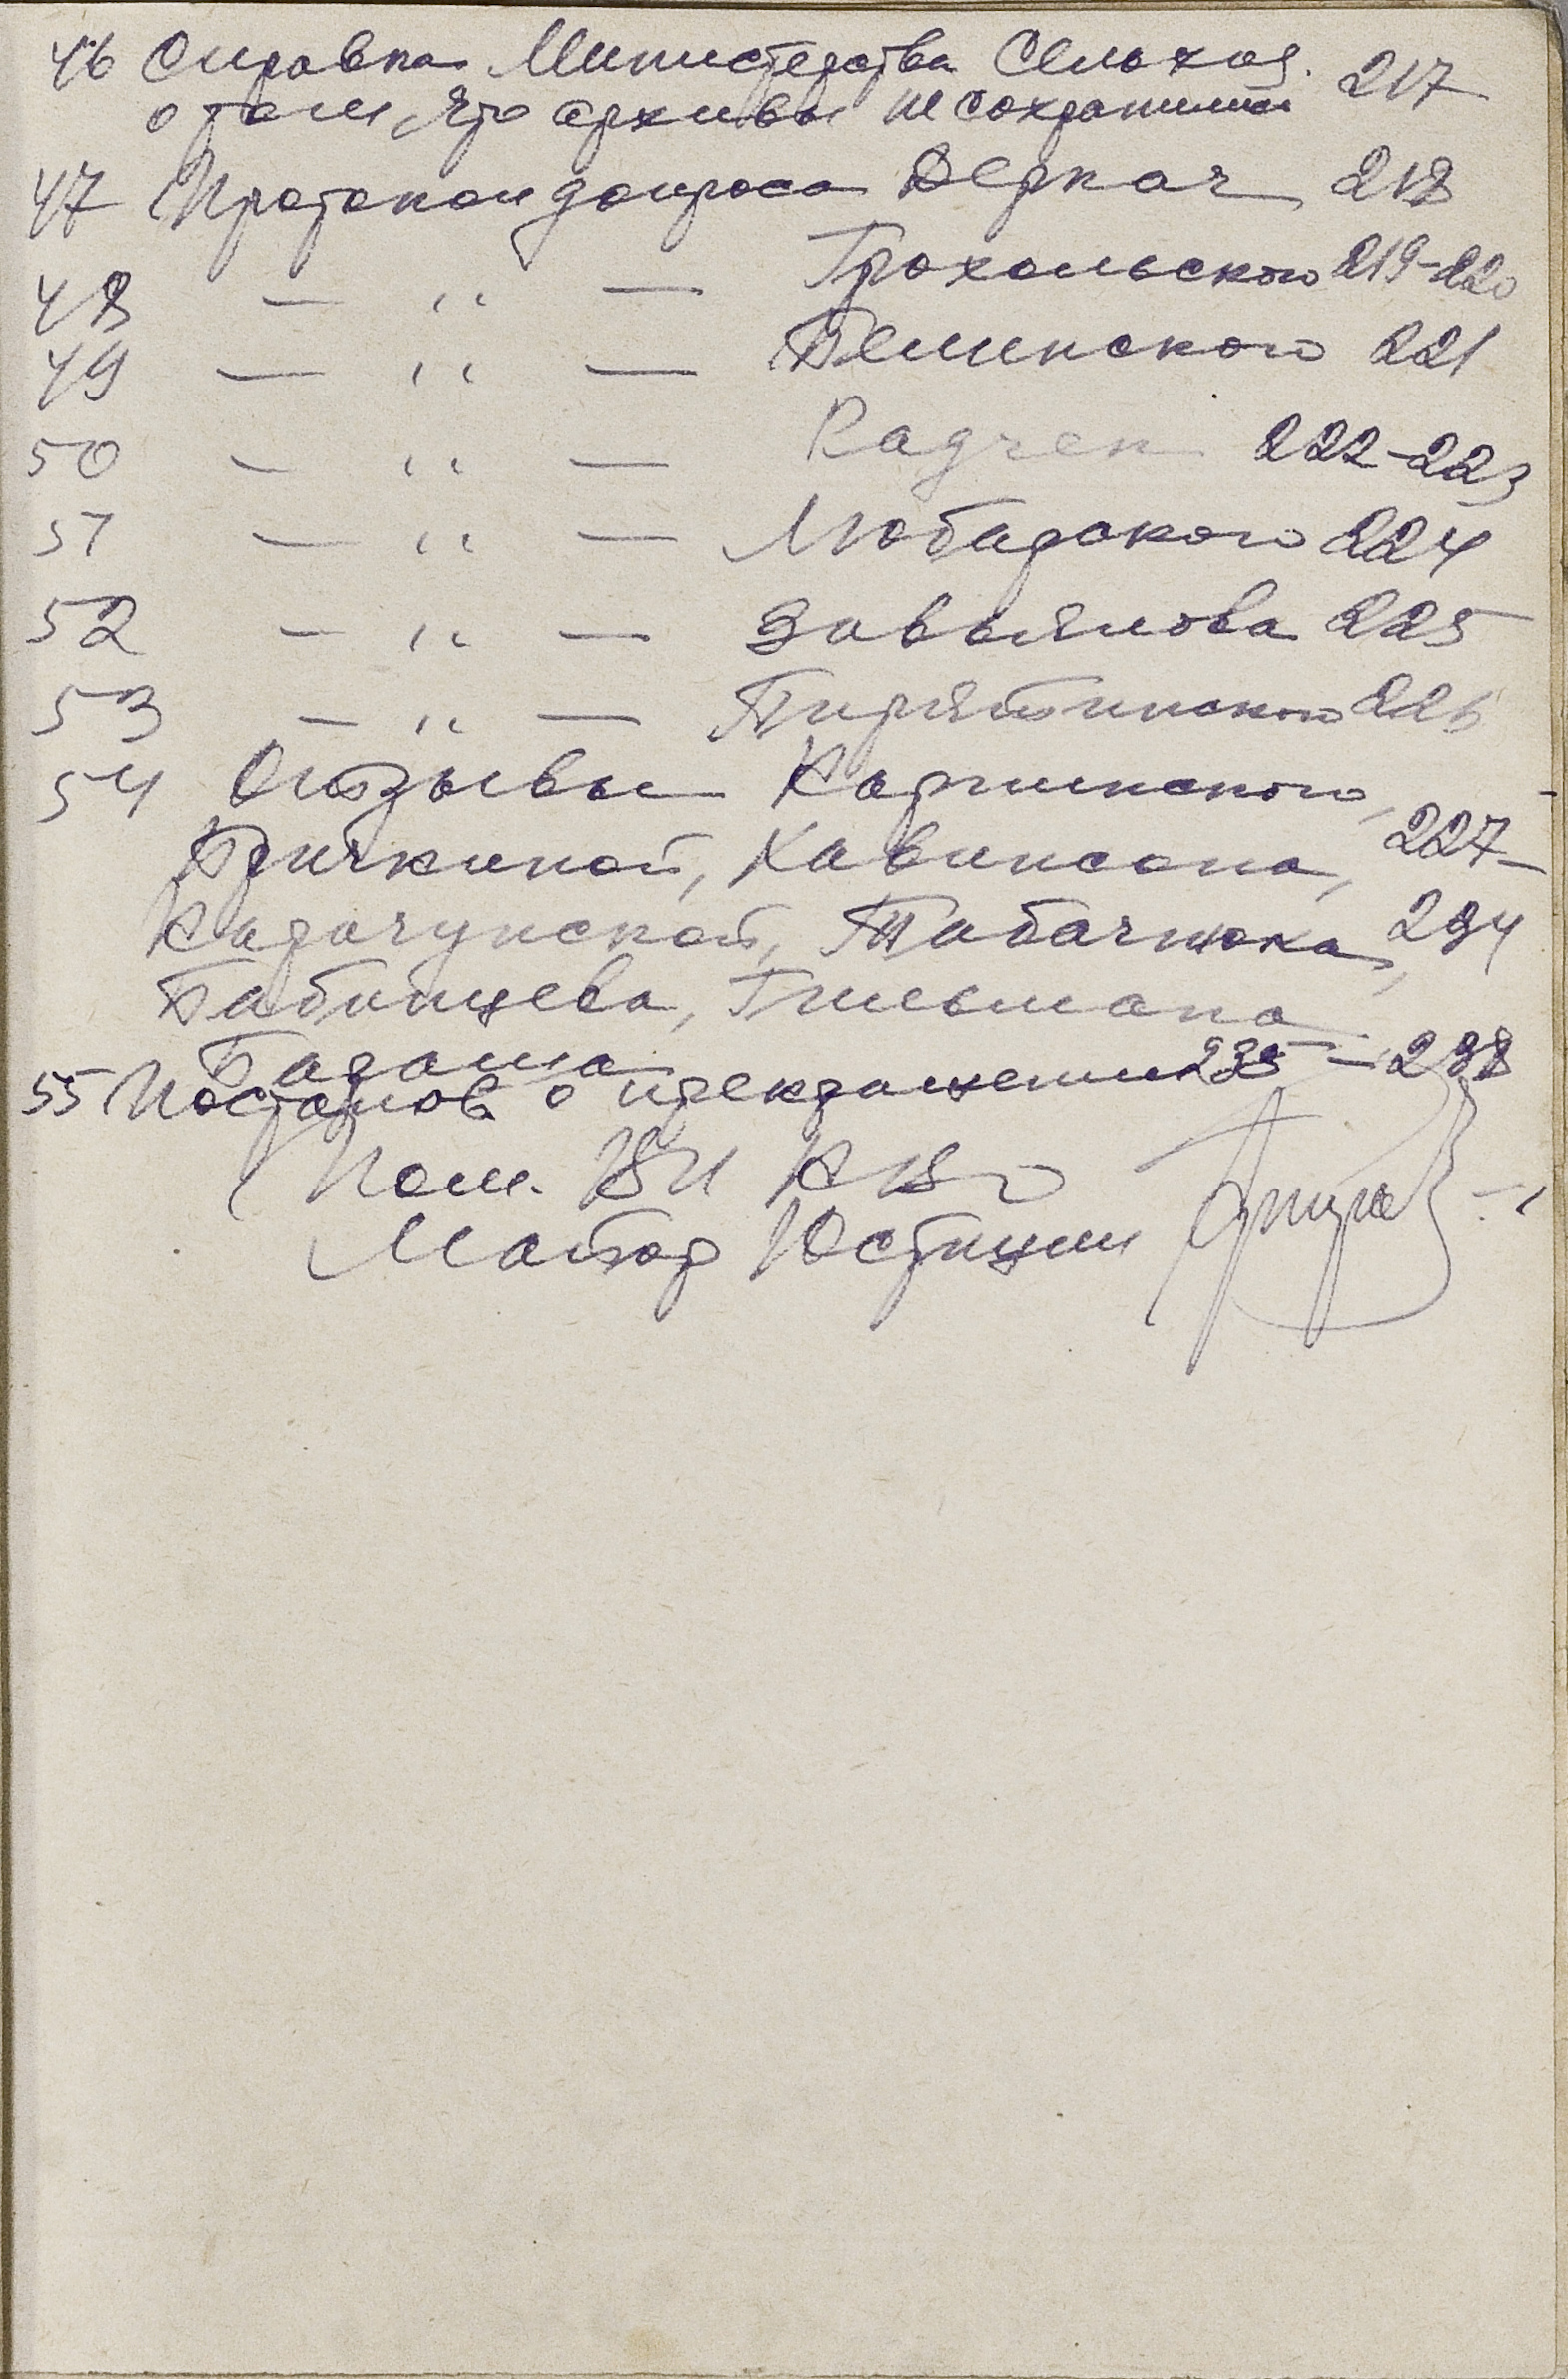 46 Справка Министерства Сельхоз. 217
о том, что архивы не сохранились
47 Протокол допроса Деркач 218
48 — " — Грохольского 219-220
49 — " — Белинского 221
50 — " — Радчен 222-223
51 — " — Любарского 224
52 — " — Завьялова 225
53 — " — Пирятинского 226
54 Отзывы Каргинского,
Бричкиной, Хавинсона, 227-
Карачунской, Табачнюка, 234
Бабинцева, Гильмана
Бараша
55 Постанов о прекращении 235-238
Пом. ВП КВО
Майор Юстиции